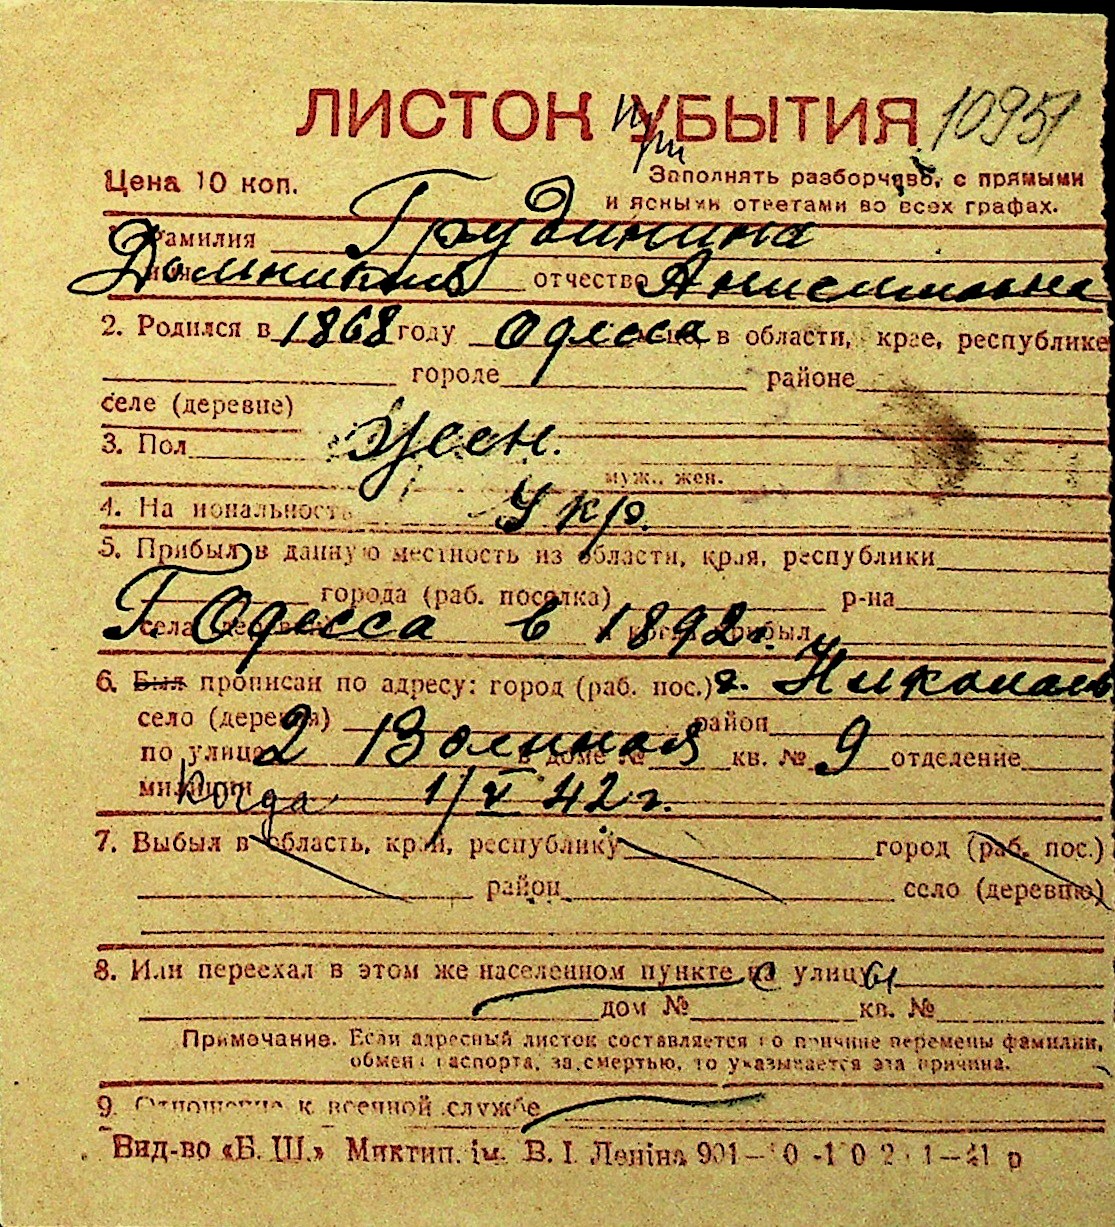 ЛИСТОК УБЫТИЯ 10951
при
Цена 10 коп. Заполнять разборчиво, с прямыми
и ясными ответами во всех графах.
Фамилия Грудинина
имя отчество Анисимовна
2. Родился в 1868 году Одесса в области, крае, республике
городе районе
селе (деревне)
3. Пол жен.
муж., жен.
4. Национальность Укр.
5. Прибыл в данную местность из области, края, республики
города (раб. поселка) р-на
села Г. Одесса в 1892 г. прибыл
6. Был прописан по адресу: город (раб. пос.) г. Николаев
село (деревня) район
по улице 2 Военная в доме № кв. № 9 отделение
милиции когда 1/V 42 г.
7. Выбыл в область, край, республику город (раб. пос.)
район село (деревню)
8. Или переехал в этом же населенном пункте с улицы
дом № кв. №
Примечание. Если адресный листок составляется по причине перемены фамилии,
обмена паспорта, за смертью, то указывается эта причина.
9. Отношение к военной службе
Вид-во «Б. Ш.» Миктип. ім. В. І. Леніна